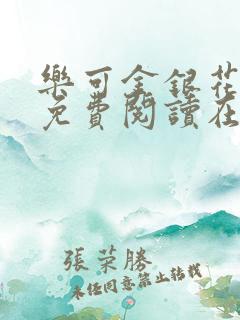 樂可金銀花
免費閱讀在
張荣勝
未经同意禁止转载